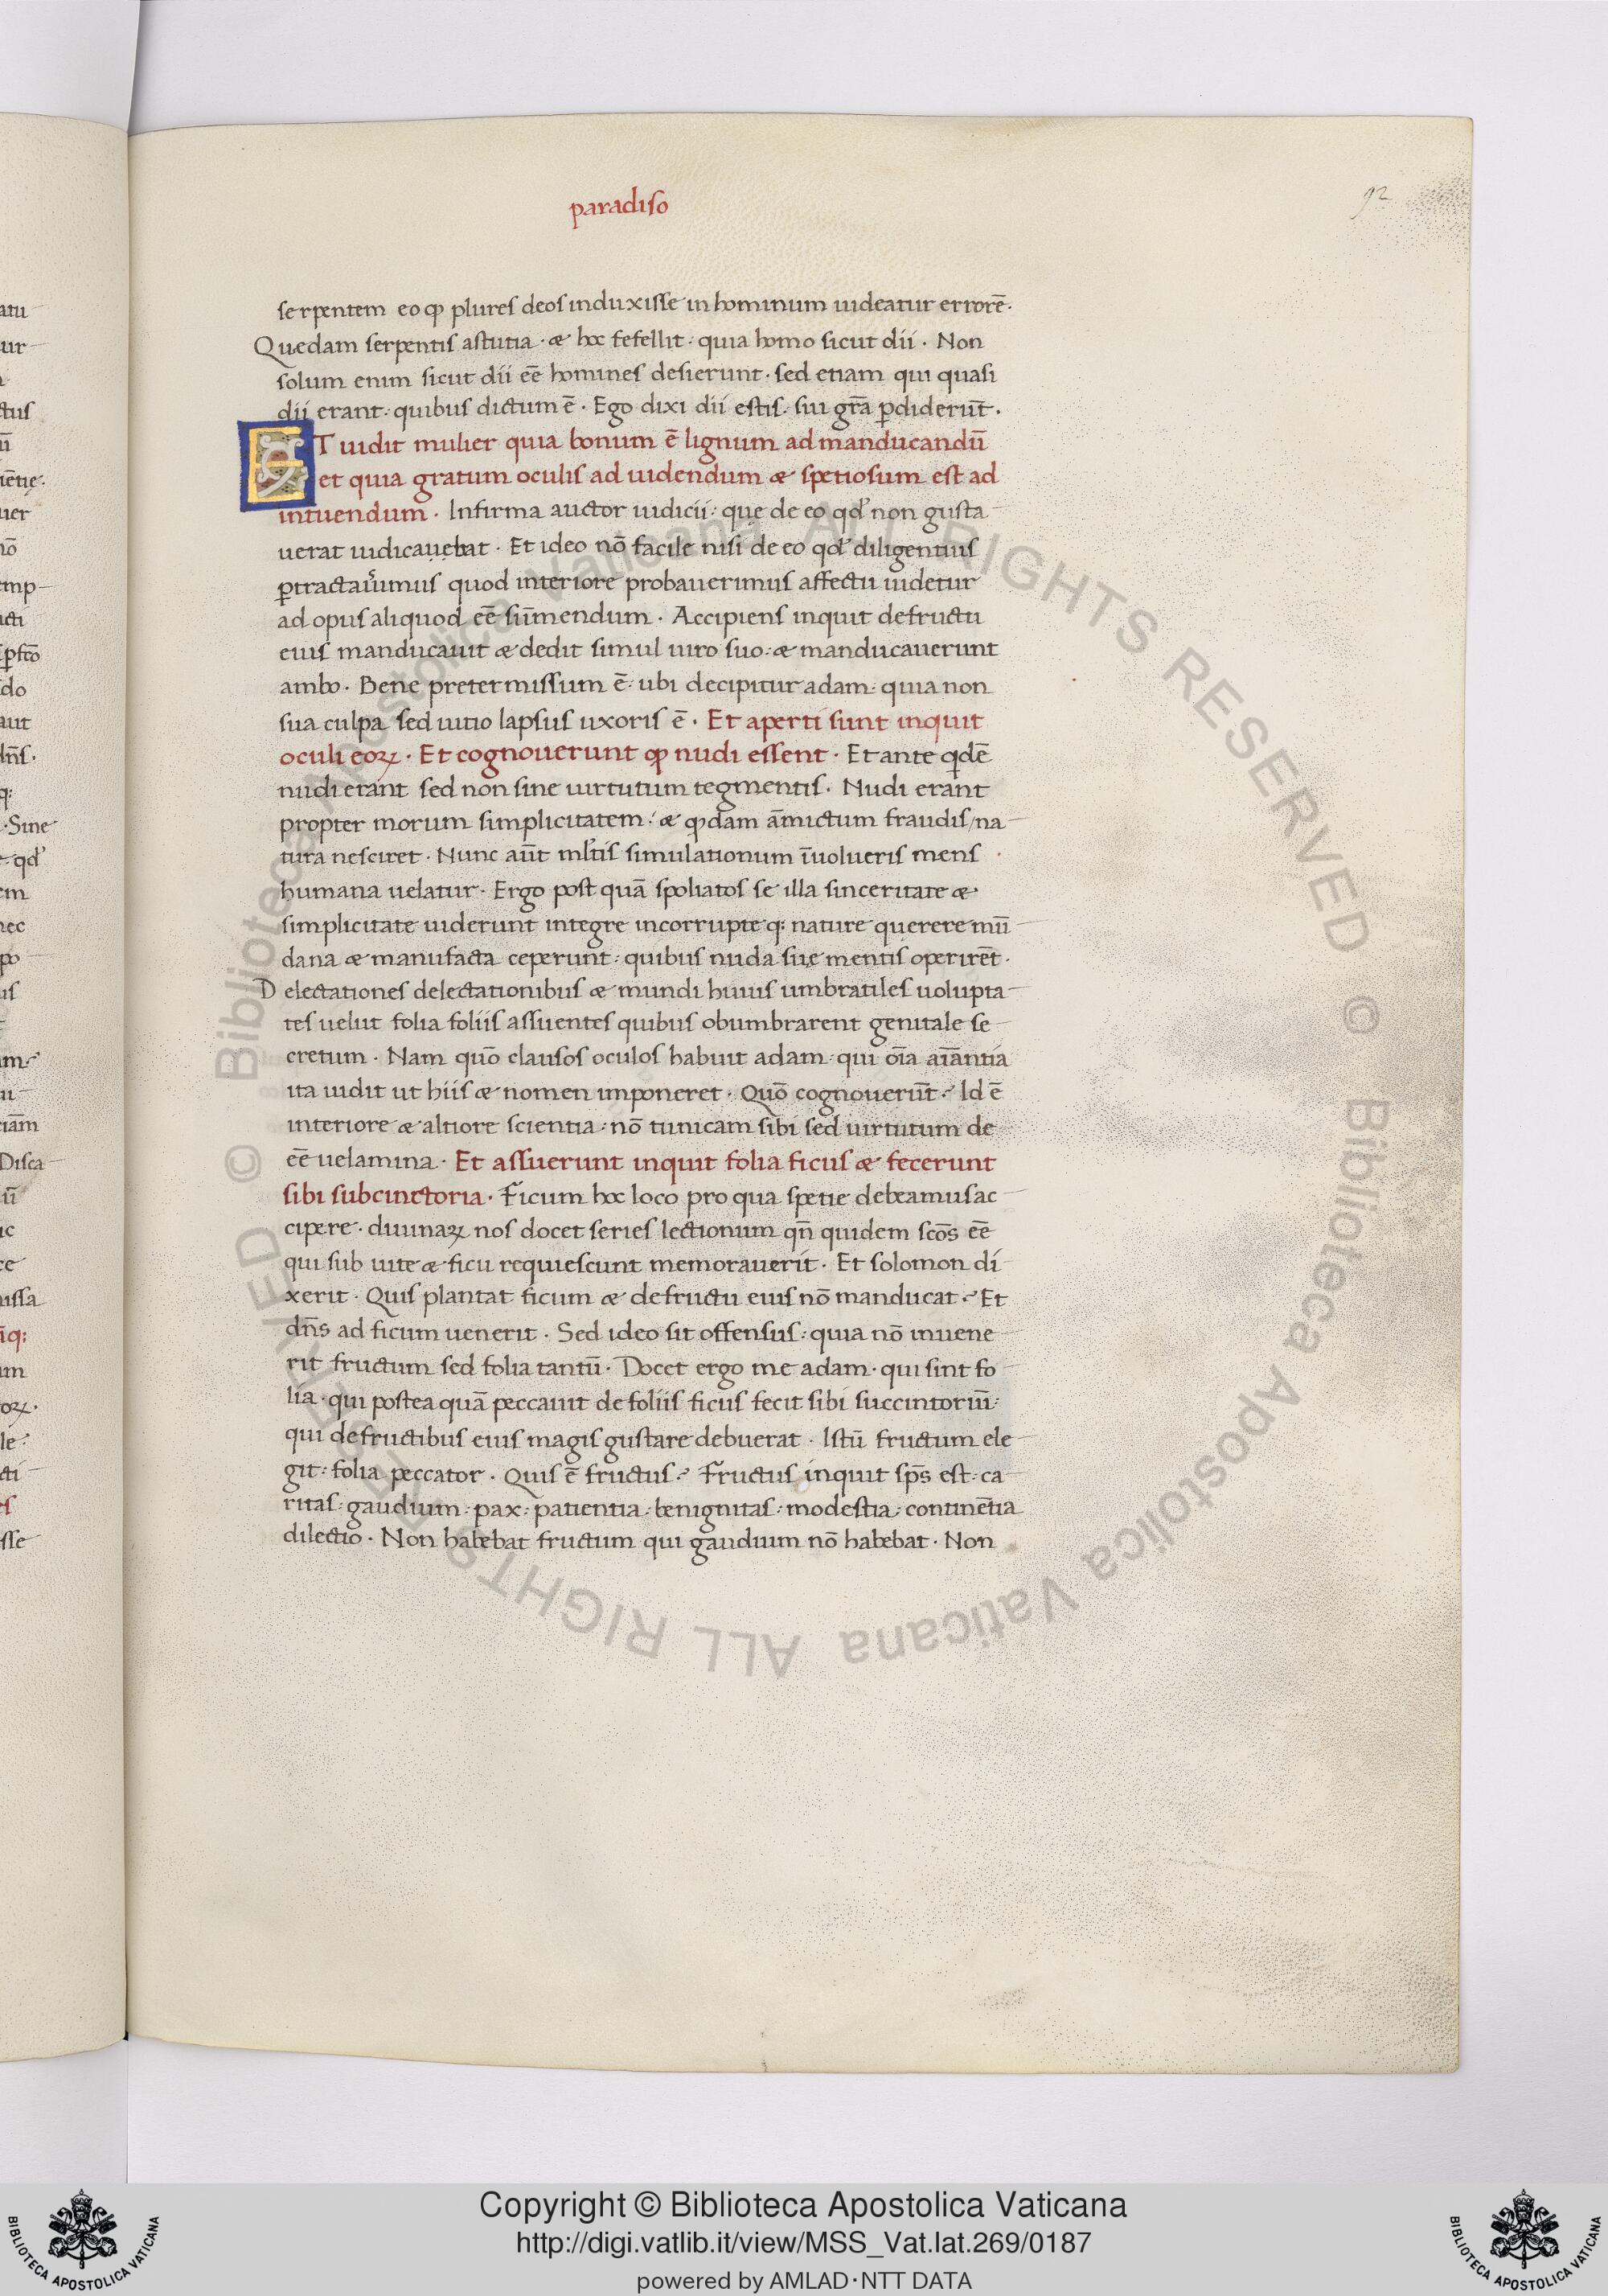 paradiso
92
serpentem eo ꝙ plures deos induxisse in hominum uideatur errorē·
Quædam serpentis astutia · & hoc fefellit : quia homo sicut dii · Non
solum enim sicut dii eē̄ homines desierunt · sed etiam qui quasi
dii erant : quibus dictum ē · Ego dixi dii estis : sui gr̄a ꝑdiderūt ·
ET uidit mulier quia bonum ē lignum ad manducandū
et quia gratum oculis ad uidendum & spetiosum est ad
intuendum · Infirma auctor iudicii : quę de eo qd' non gusta
uerat iudicauebat · Et ideo nō facile nisi de eo qd' diligentius
ꝑtractauimus quod interiore probauerimus affectu uidetur
ad opus aliquod eē sūmendum · Accipiens inquit de fructu
eius manducauit & dedit simul uiro suo : & manducauerunt
ambo · Bene pretermissum ē : ubi decipitur adam : quia non
sua culpa sed uitio lapsus uxoris ē · Et aperti sunt inquit
oculi eoꝝ · Et cognouerunt ꝙ nudi essent · Et ante qdē
nudi erant sed non sine uirtutum tegmentis · Nudi erant
propter morum simplicitatem : & ꝙdam āmictum fraudis / na
tura nesciret · Nunc aūt ml̄tis simulationum īuolucris mens
humana uelatur · Ergo post quā spoliatos se illa sinceritate &
simplicitate uiderunt integre incorrupte q: nature querere mū
dana & manufacta ceperunt : quibus nuda sue mentis operirēt ·
Delectationes delectationibus & mundi huius umbratiles uolupta
tes uelut folia foliis assuentes quibus obumbrarent genitale se
cretum · Nam quō clausos oculos habuit adam : qui oīa aīantia
ita uidit ut hiis & nomen imponeret · Quō cognouerūt ? Id ē
interiore & altiore scientia : nō tunicam sibi sed uirtutum de
eē uelamina · Et assuerunt inquit folia ficus & fecerunt
sibi subcinctoria · Ficum hoc loco pro qua spetie debeamus ac
cipere · diuinaꝝ nos docet series lectionum qn̄ quidem scōs eē
qui sub uite & ficu requiescunt memorauerit · Et solomon di
xerit · Quis plantat ficum & de fructu eius nō manducat ? Et
dn̄s ad ficum uenerit · Sed ideo sit offensus : quia nō inuene
rit fructum sed folia tantū · Docet ergo me adam · qui sint fo
lia · qui postea quā peccauit de foliis ficus fecit sibi succintoriū :
qui de fructibus eius magis gustare debuerat · Istū fructum ele
git : folia peccator · Quis ē fructus ? Fructus inquit sp̄s est : ca
ritas : gaudium : pax : patientia : benignitas : modestia : continētia
dilectio · Non habebat fructum qui gaudium nō habebat · Non
© Biblioteca Apostolica Vaticana ALL RIGHTS RESERVED
© Biblioteca Apostolica Vaticana ALL RIGHTS RESERVED
Copyright © Biblioteca Apostolica Vaticana
http://digi.vatlib.it/view/MSS_Vat.lat.269/0187
powered by AMLAD·NTT DATA
BIBLIOTECA APOSTOLICA VATICANA
BIBLIOTECA APOSTOLICA VATICANA